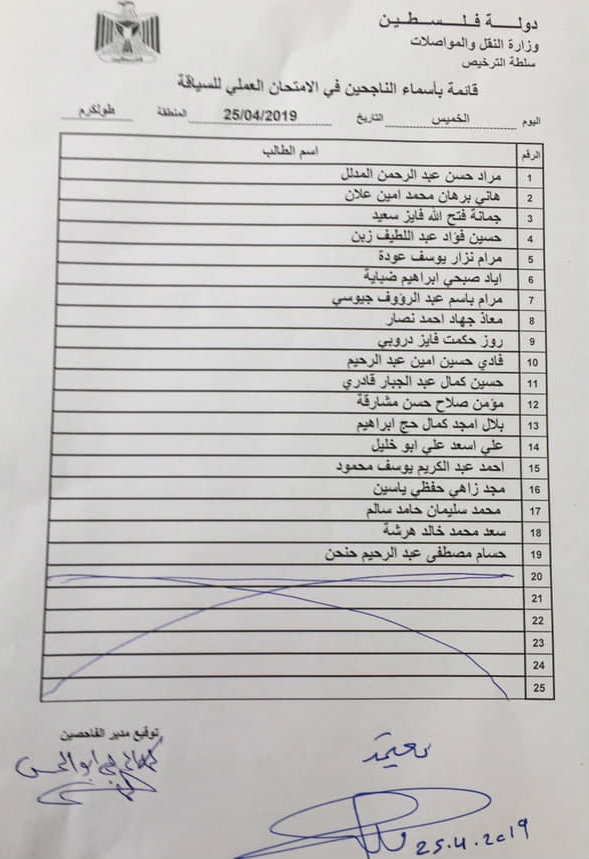 دولة فلسطين
وزارة النقل والمواصلات
سلطة الترخيص
قائمة بأسماء الناجحين في الامتحان العملي للسياقة
اليوم الخميس التاريخ 25/04/2019 المنطقة طولكرم
الرقم اسم الطالب
1 مراد حسن عبد الرحمن المدلل
2 هاني برهان محمد امين علان
3 جمانة فتح الله فايز سعيد
4 حسين فؤاد عبد اللطيف زبن
5 مرام نزار يوسف عودة
6 اياد صبحي ابراهيم ضبابة
7 مرام باسم عبد الرؤوف جيوسي
8 معاذ جهاد احمد نصار
9 روز حكمت فايز دروبي
10 فادي حسين امين عبد الرحيم
11 حسين كمال عبد الجبار قادري
12 مؤمن صلاح حسن مشارقة
13 بلال امجد كمال حج ابراهيم
14 علي اسعد علي ابو خليل
15 احمد عبد الكريم يوسف محمود
16 مجد زاهي حفظي ياسين
17 محمد سليمان حامد سالم
18 سعد محمد خالد هرشة
19 حسام مصطفى عبد الرحيم حنحن
20
21
22
23
24
25
توقيع مدير الفاحصين
يعتمد
25.4.2019